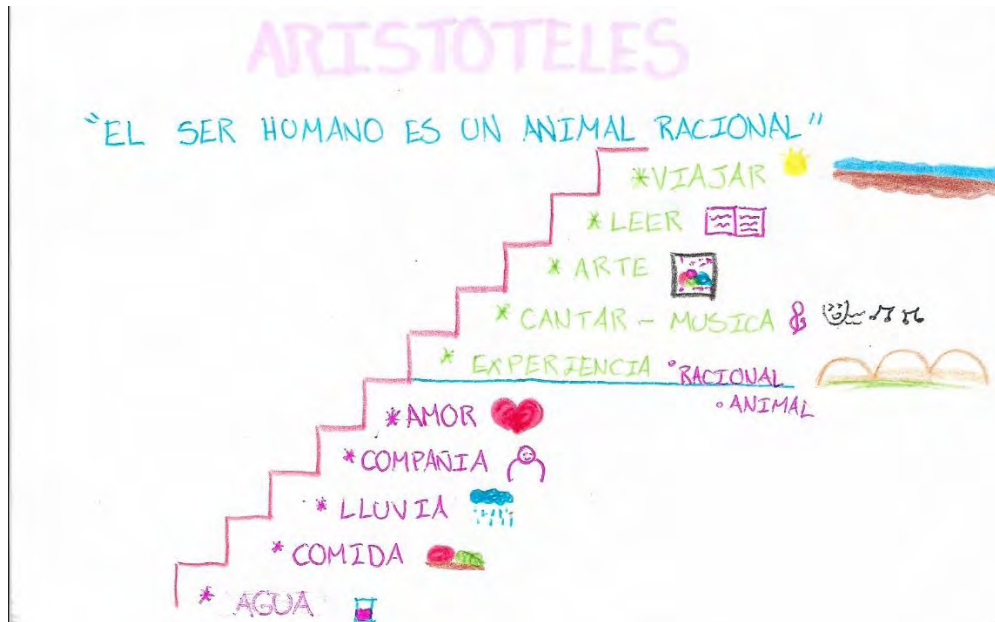 ARISTOTELES
"EL SER HUMANO ES UN ANIMAL RACIONAL"
*VIAJAR
*LEER
*ARTE
*CANTAR - MUSICA
*EXPERIENCIA °RACIONAL
°ANIMAL
*AMOR
*COMPAÑIA
*LLUVIA
*COMIDA
*AGUA